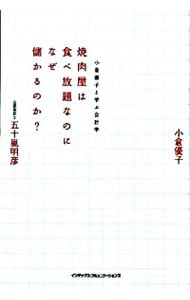 小倉優子と学ぶ会計学
焼肉屋は
食べ放題なのに
なぜ
儲かるのか?
小倉優子
公認会計士 五十嵐明彦
インデックス・コミュニケーションズ